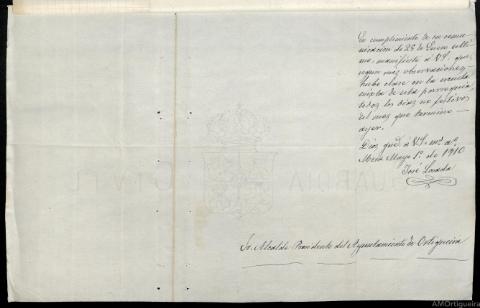 En cumplimiento de su comu-
nicación de 28 de Enero ulti-
mo, manifiesto a V.S. que
segun mis observaciones
hubo clase en la escuela
mixta de esta parroquia
todos los dias no festivos
del mes que termino
ayer.
Dios gue. a V.S. ms. as.
Mayo 1º de 1910
José Losada
Sr. Alcalde Presidente del Ayuntamiento de Ortigueira
GUARDIA CIVIL
AMOrtigueira